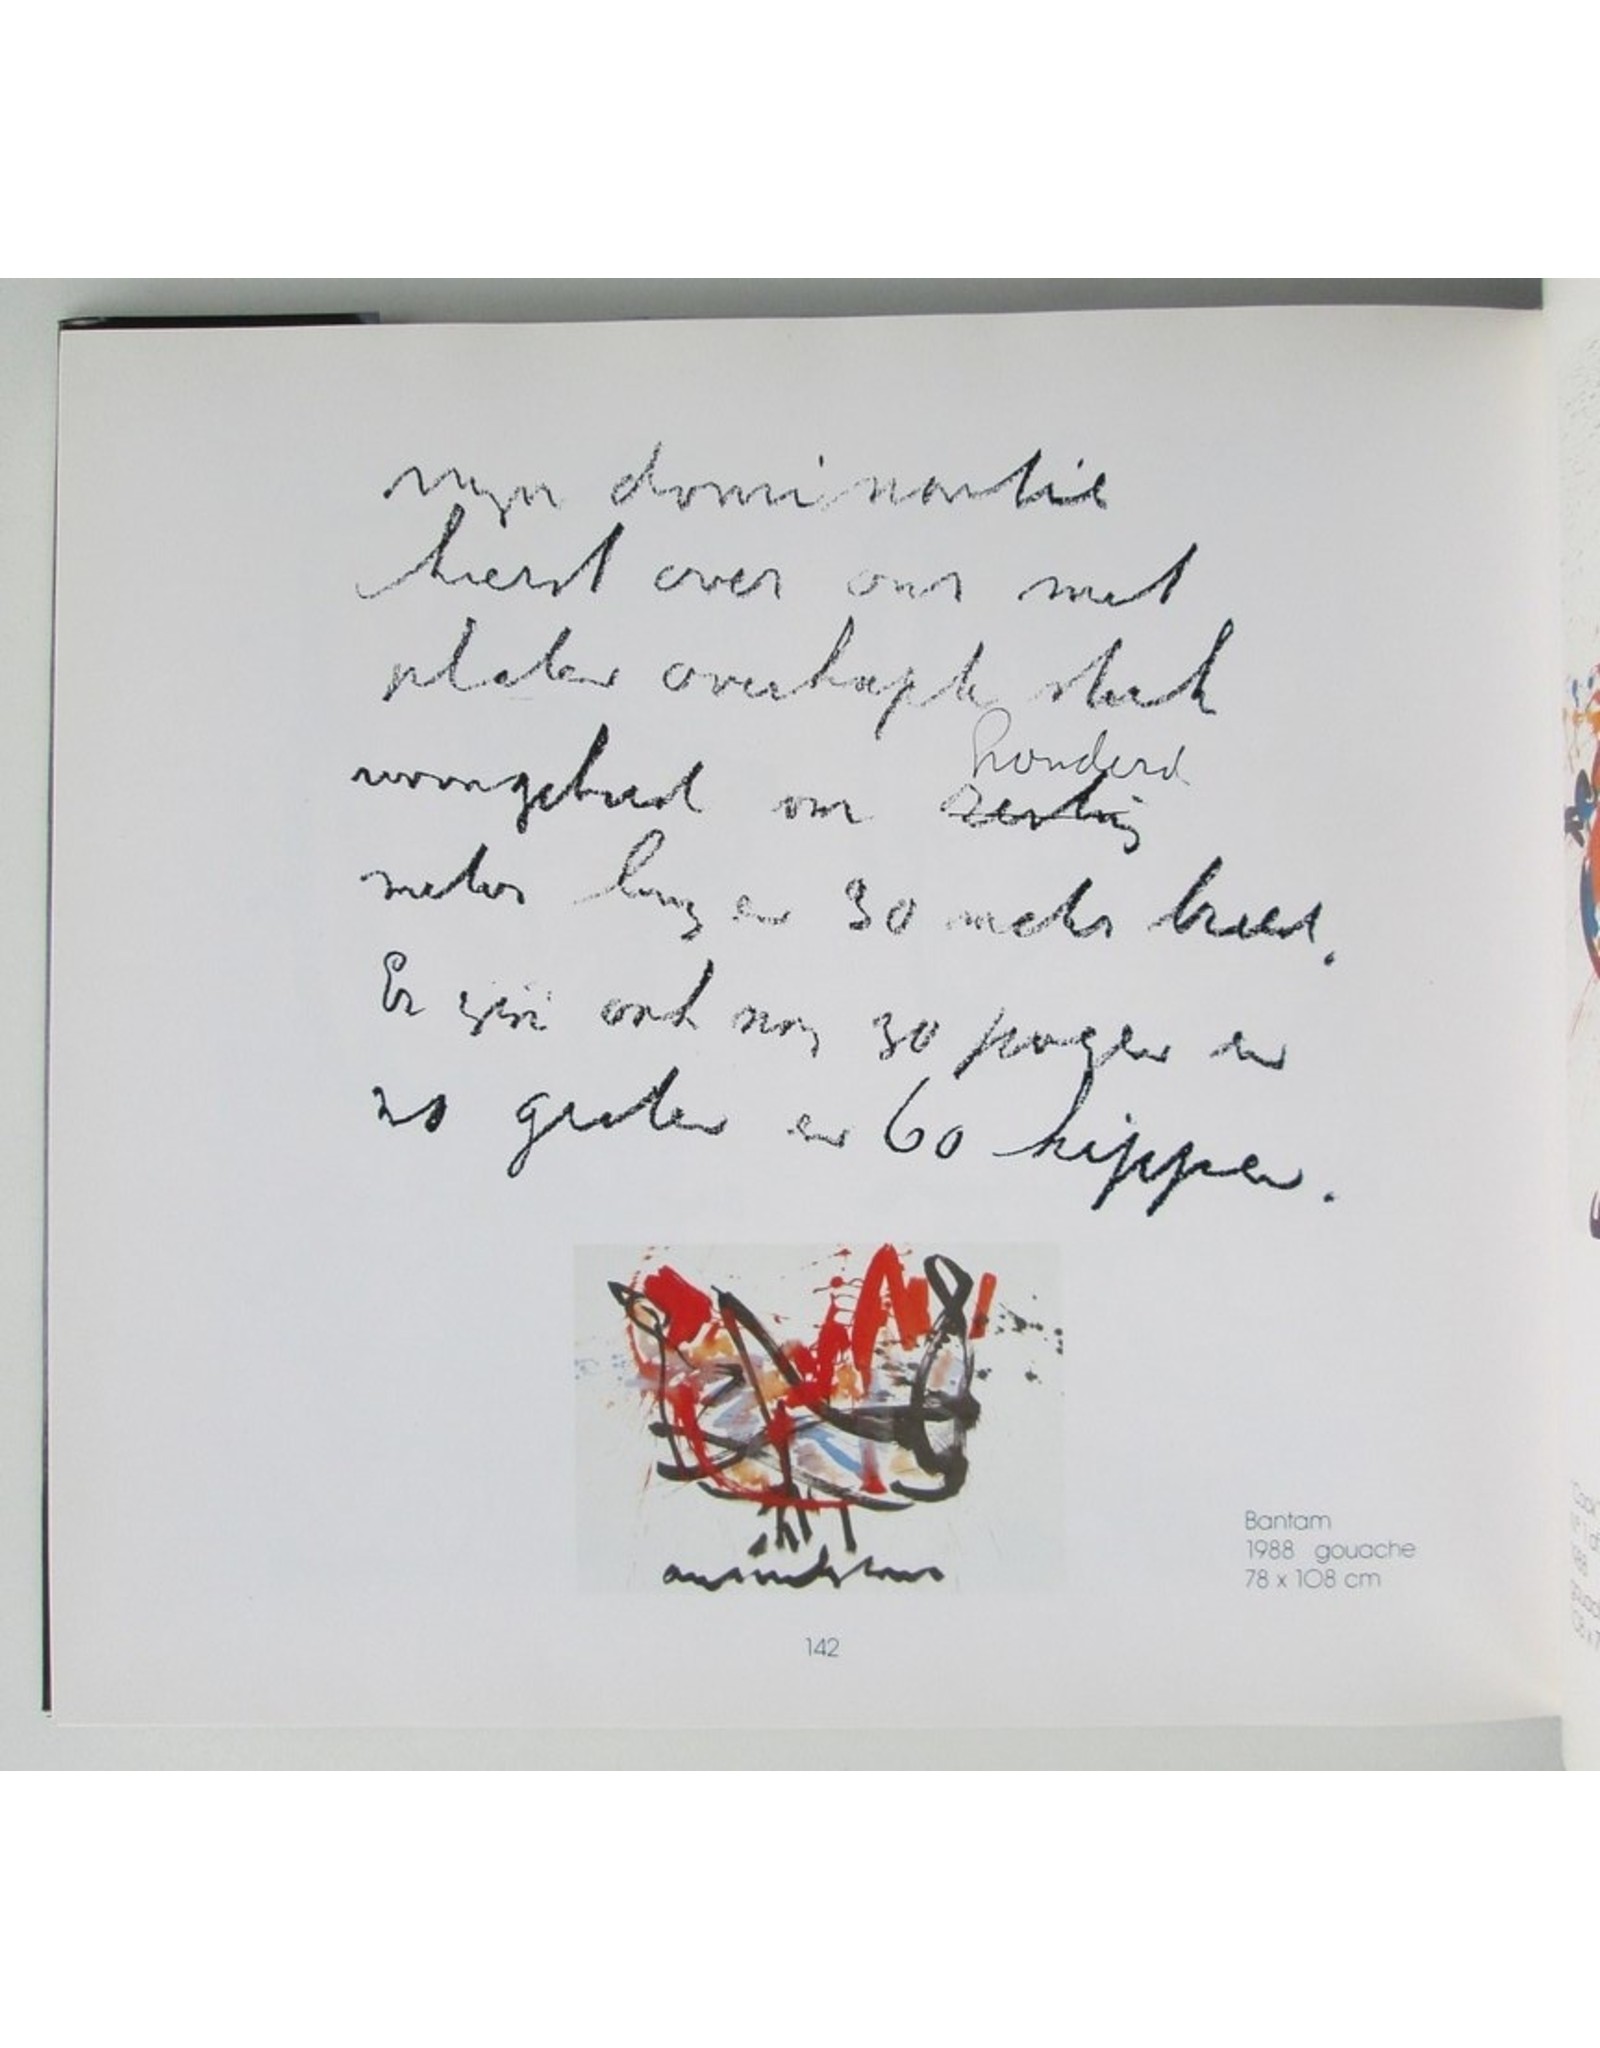 mijn dominantie
heerst over ons met
platen overkapte stuk
woongebied honderd
meter lang en 30 meter breed.
Er zijn ook nog 30 en
en 60 kippen.
Bantam
1988 gouache
78 x 108 cm
142